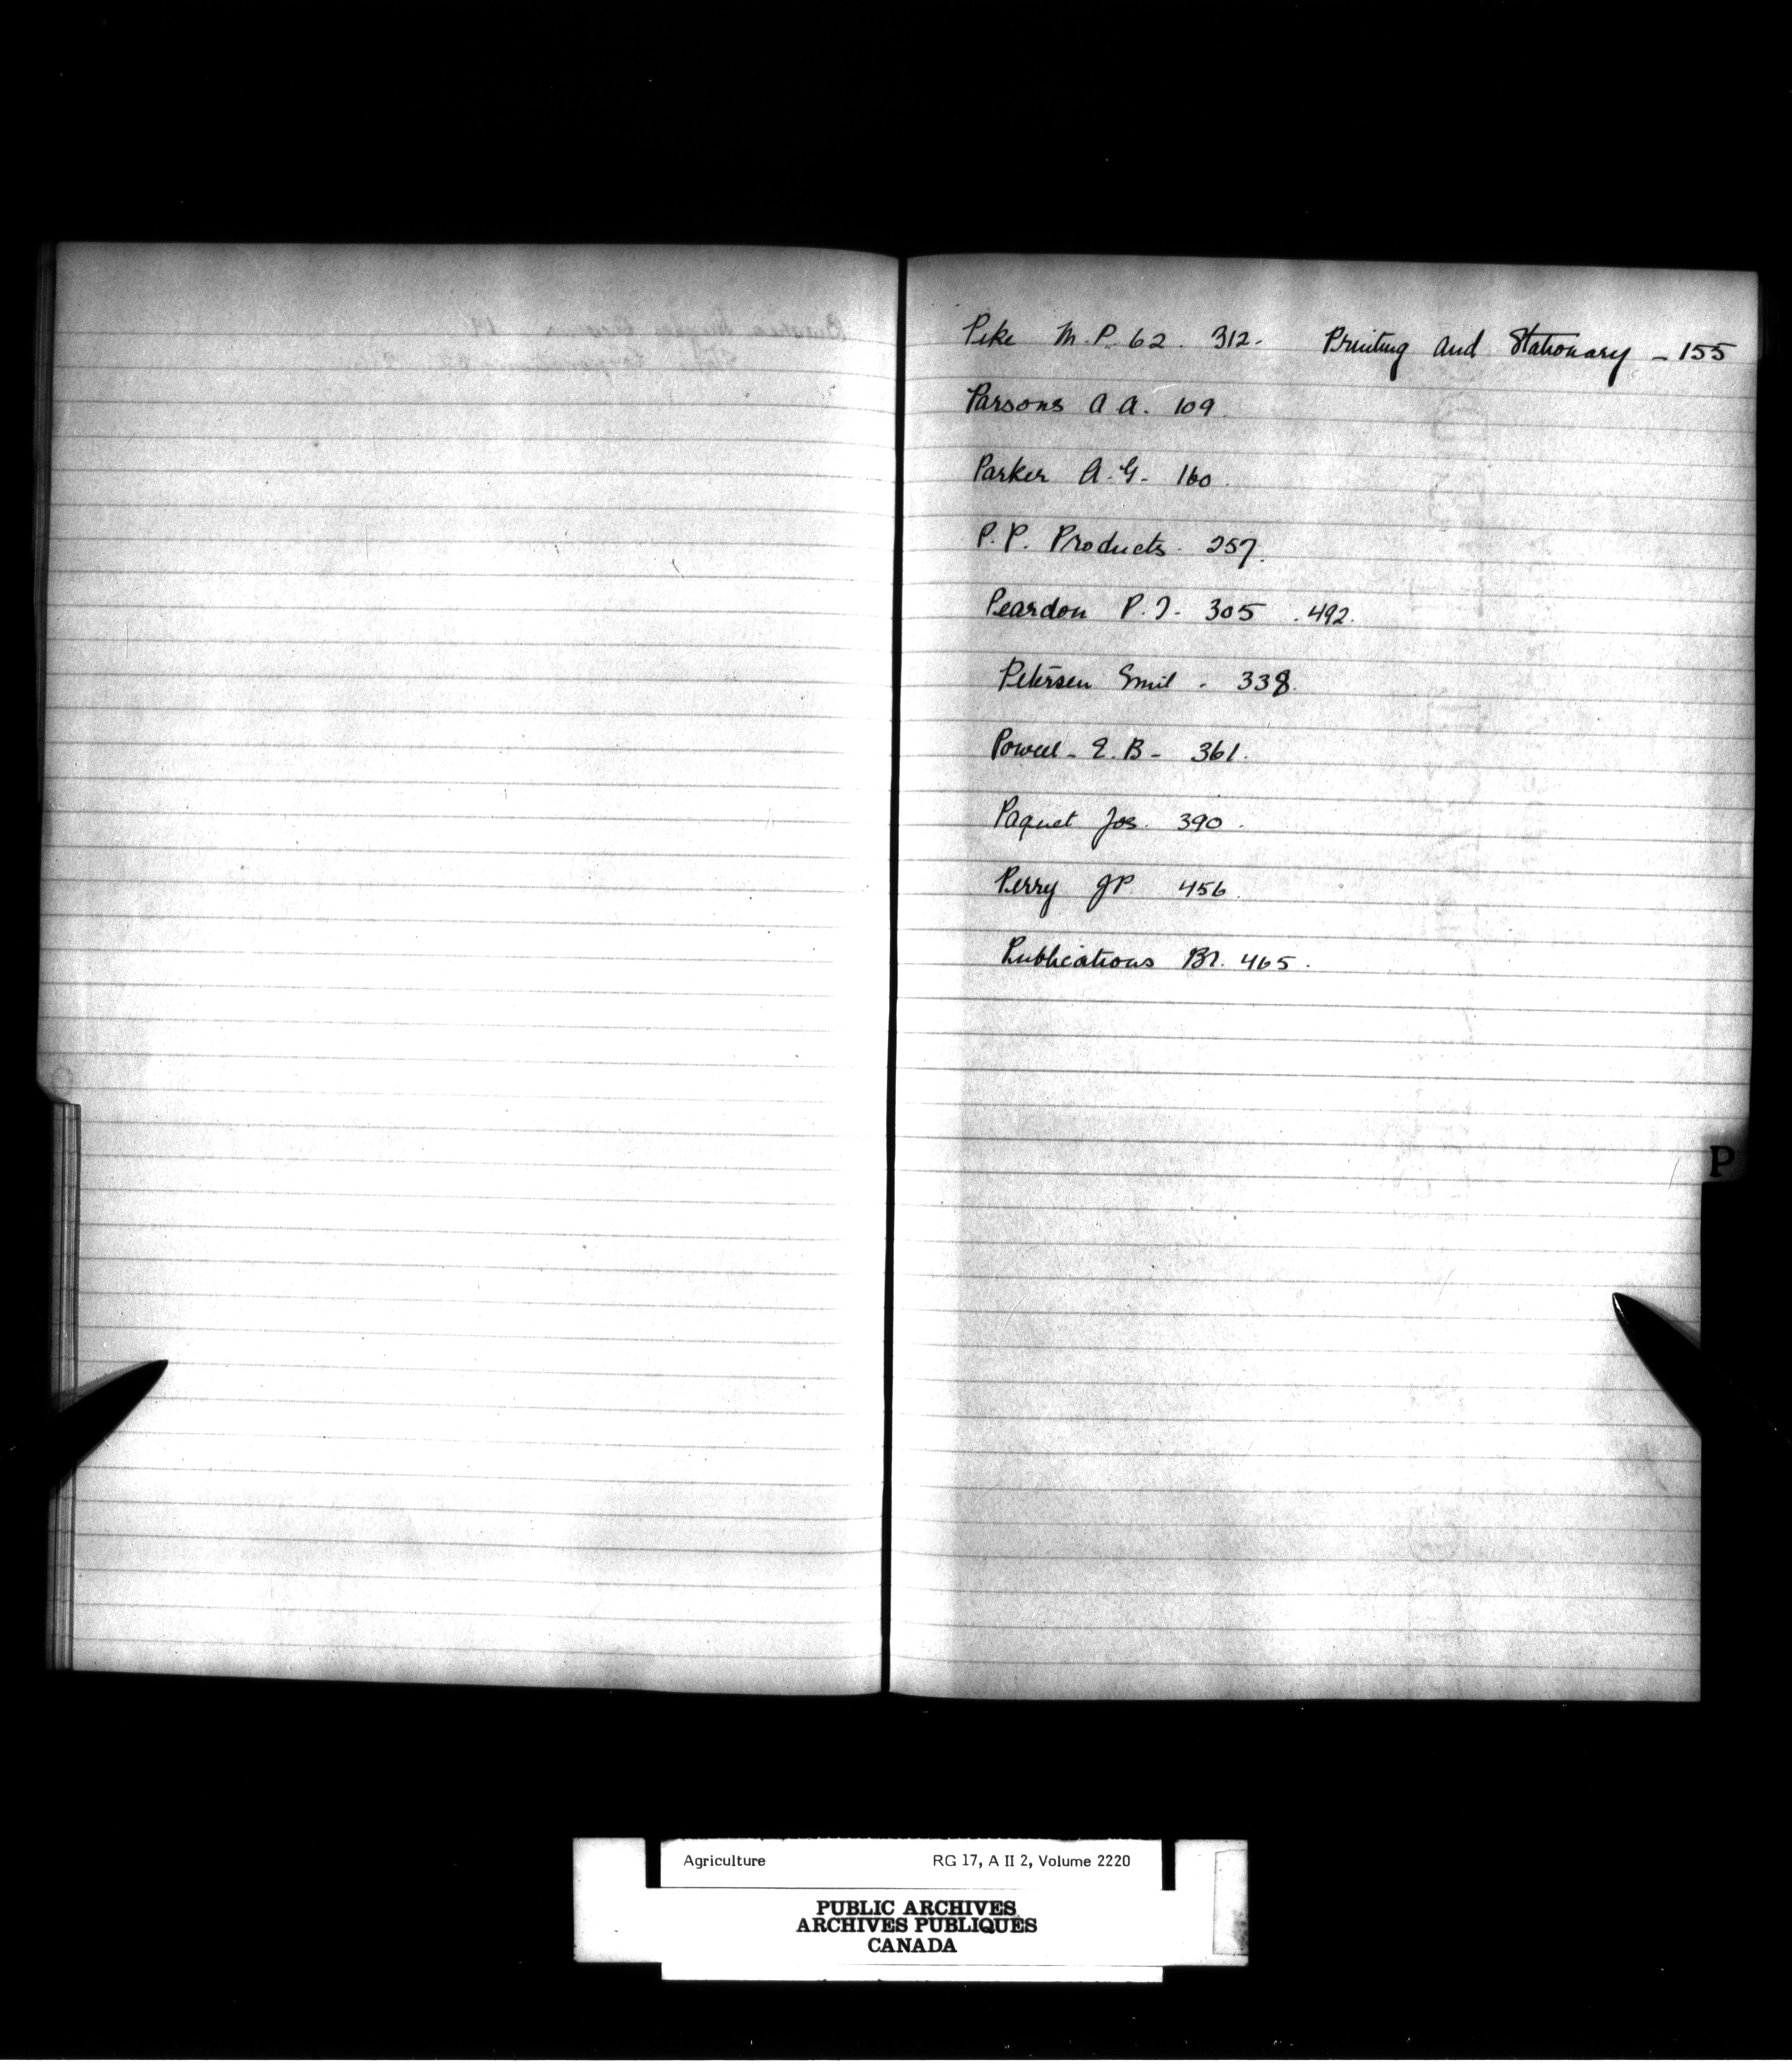 Pike M.P. 62. 312- Printing and Stationary - 155
Parsons A A. 109.
Parker A.G- 160.
P.P. Products. 257.
Peardon P.J- 305 .492.
Petersen Emil - 338.
Powell - E.B- 361.
Paquet Jos. 390.
Perry JP. 456.
Publications Br. 465.
P
Agriculture RG 17, A II 2, Volume 2220
PUBLIC ARCHIVES
ARCHIVES PUBLIQUES
CANADA